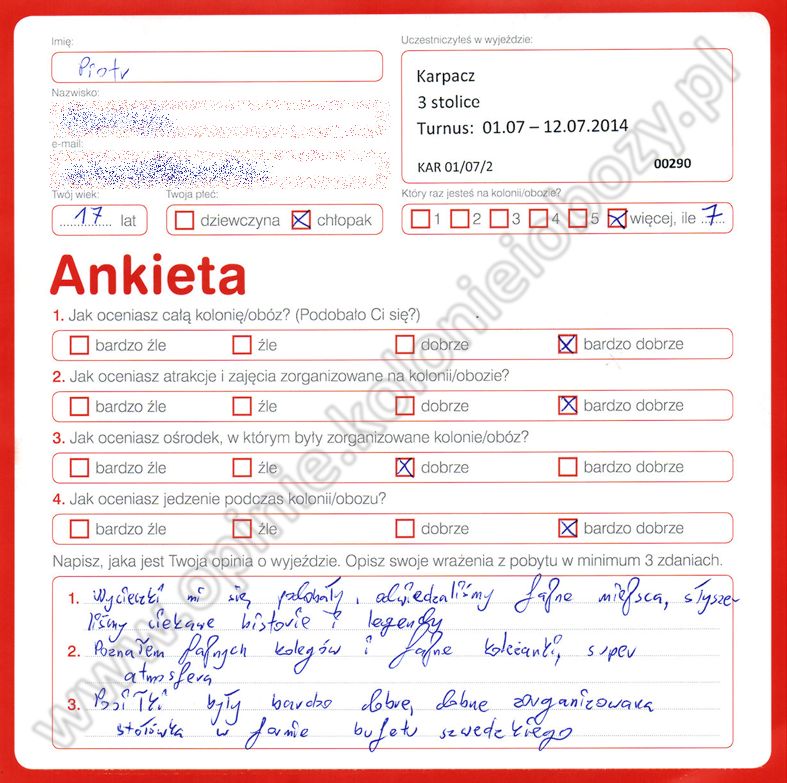 Imię:
Piotr
Nazwisko:
e-mail:
Uczestniczyłeś w wyjeździe:
Karpacz
3 stolice
Turnus: 01.07 – 12.07.2014
KAR 01/07/2 00290
Twój wiek:
17 lat
Twoja płeć:
dziewczyna chłopak
Który raz jesteś na kolonii/obozie?
1 2 3 4 5 więcej, ile 7
Ankieta
1. Jak oceniasz całą kolonię/obóz? (Podobało Ci się?)
bardzo źle źle dobrze bardzo dobrze
2. Jak oceniasz atrakcje i zajęcia zorganizowane na kolonii/obozie?
bardzo źle źle dobrze bardzo dobrze
3. Jak oceniasz ośrodek, w którym były zorganizowane kolonie/obóz?
bardzo źle źle dobrze bardzo dobrze
4. Jak oceniasz jedzenie podczas kolonii/obozu?
bardzo źle źle dobrze bardzo dobrze
Napisz, jaka jest Twoja opinia o wyjeździe. Opisz swoje wrażenia z pobytu w minimum 3 zdaniach.
1. Wycieczki mi się podobały, odwiedzaliśmy fajne miejsca, słysze-
liśmy ciekawe historie i legendy
2. Poznałem fajnych kolegów i fajne koleżanki, super
atmosfera
3. Posiłki były bardzo dobre, dobrze zorganizowana
stołówka w formie bufetu szwedzkiego
www.opinie.kolonieiobozy.pl